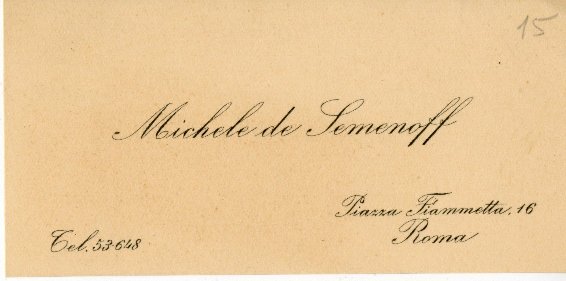 15
Michele de Semenoff
Piazza Fiammetta, 16
Roma
Tel. 53-648